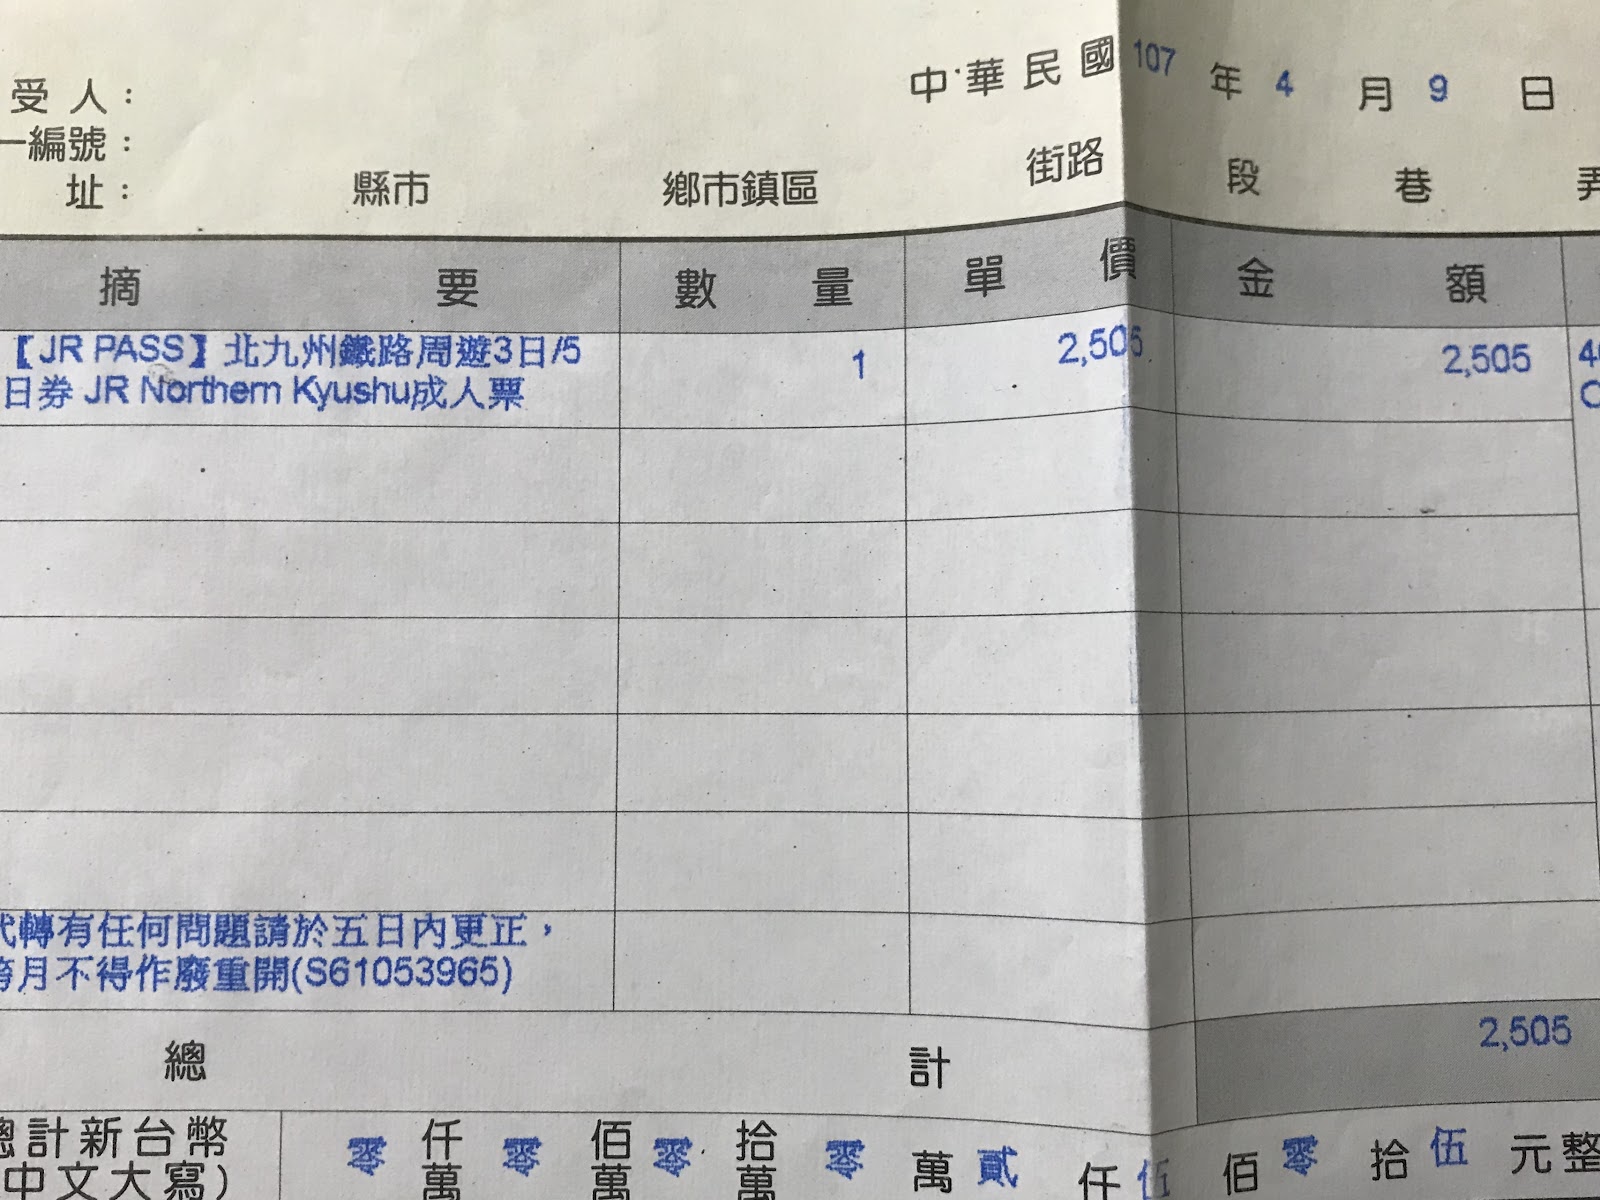 中華民國 107 年 4 月 9 日
受人：
一編號：
址： 縣市 鄉市鎮區 街路 段 巷 弄
摘要 數量 單價 金額
【JR PASS】北九州鐵路周遊3日/5 1 2,505 2,505
日券 JR Northern Kyushu成人票
代轉有任何問題請於五日內更正，
跨月不得作廢重開(S61053965)
總計 2,505
總計新台幣
(中文大寫)
零 仟萬 零 佰萬 零 拾萬 零 萬 貳 仟 伍 佰 零 拾 伍 元整